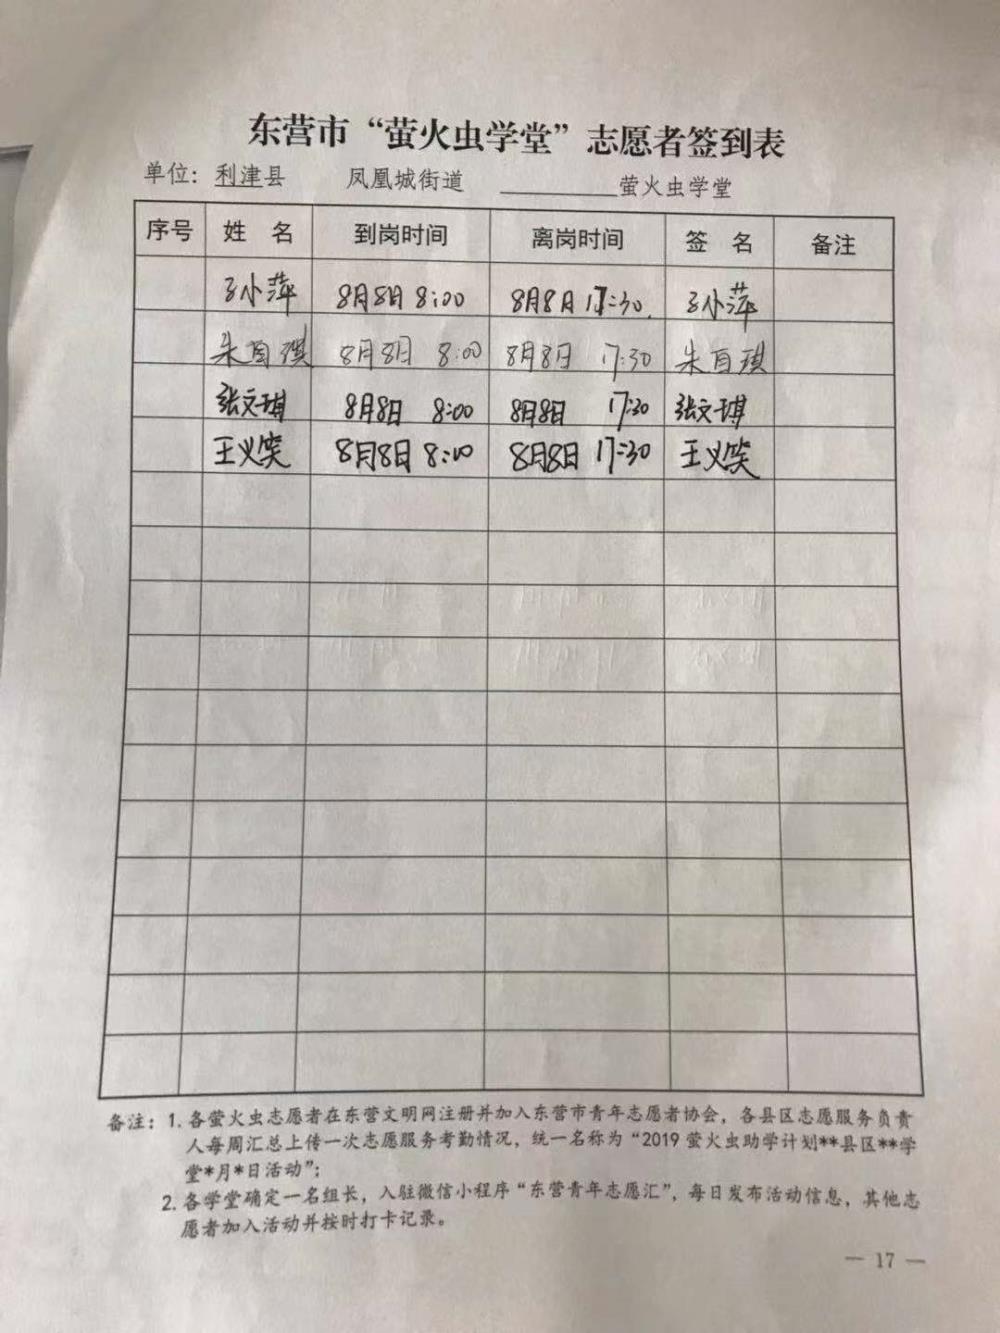 东营市“萤火虫学堂”志愿者签到表
单位：利津县 凤凰城街道 ________萤火虫学堂
序号 姓 名 到岗时间 离岗时间 签 名 备注
孙小萍 8月8日 8:00 8月8日 17:30. 孙小萍
朱百琪 8月8日 8:00 8月8日 17:30 朱百琪
张文琪 8月8日 8:00 8月8日 17:30 张文琪
王义笑 8月8日 8:00 8月8日 17:30 王义笑
备注：1. 各萤火虫志愿者在东营文明网注册并加入东营市青年志愿者协会，各县区志愿服务负责
人每周汇总上传一次志愿服务考勤情况，统一名称为“2019 萤火虫助学计划**县区**学
堂*月*日活动”；
2. 各学堂确定一名组长，入驻微信小程序“东营青年志愿汇”，每日发布活动信息，其他志
愿者加入活动并按时打卡记录。
— 17 —